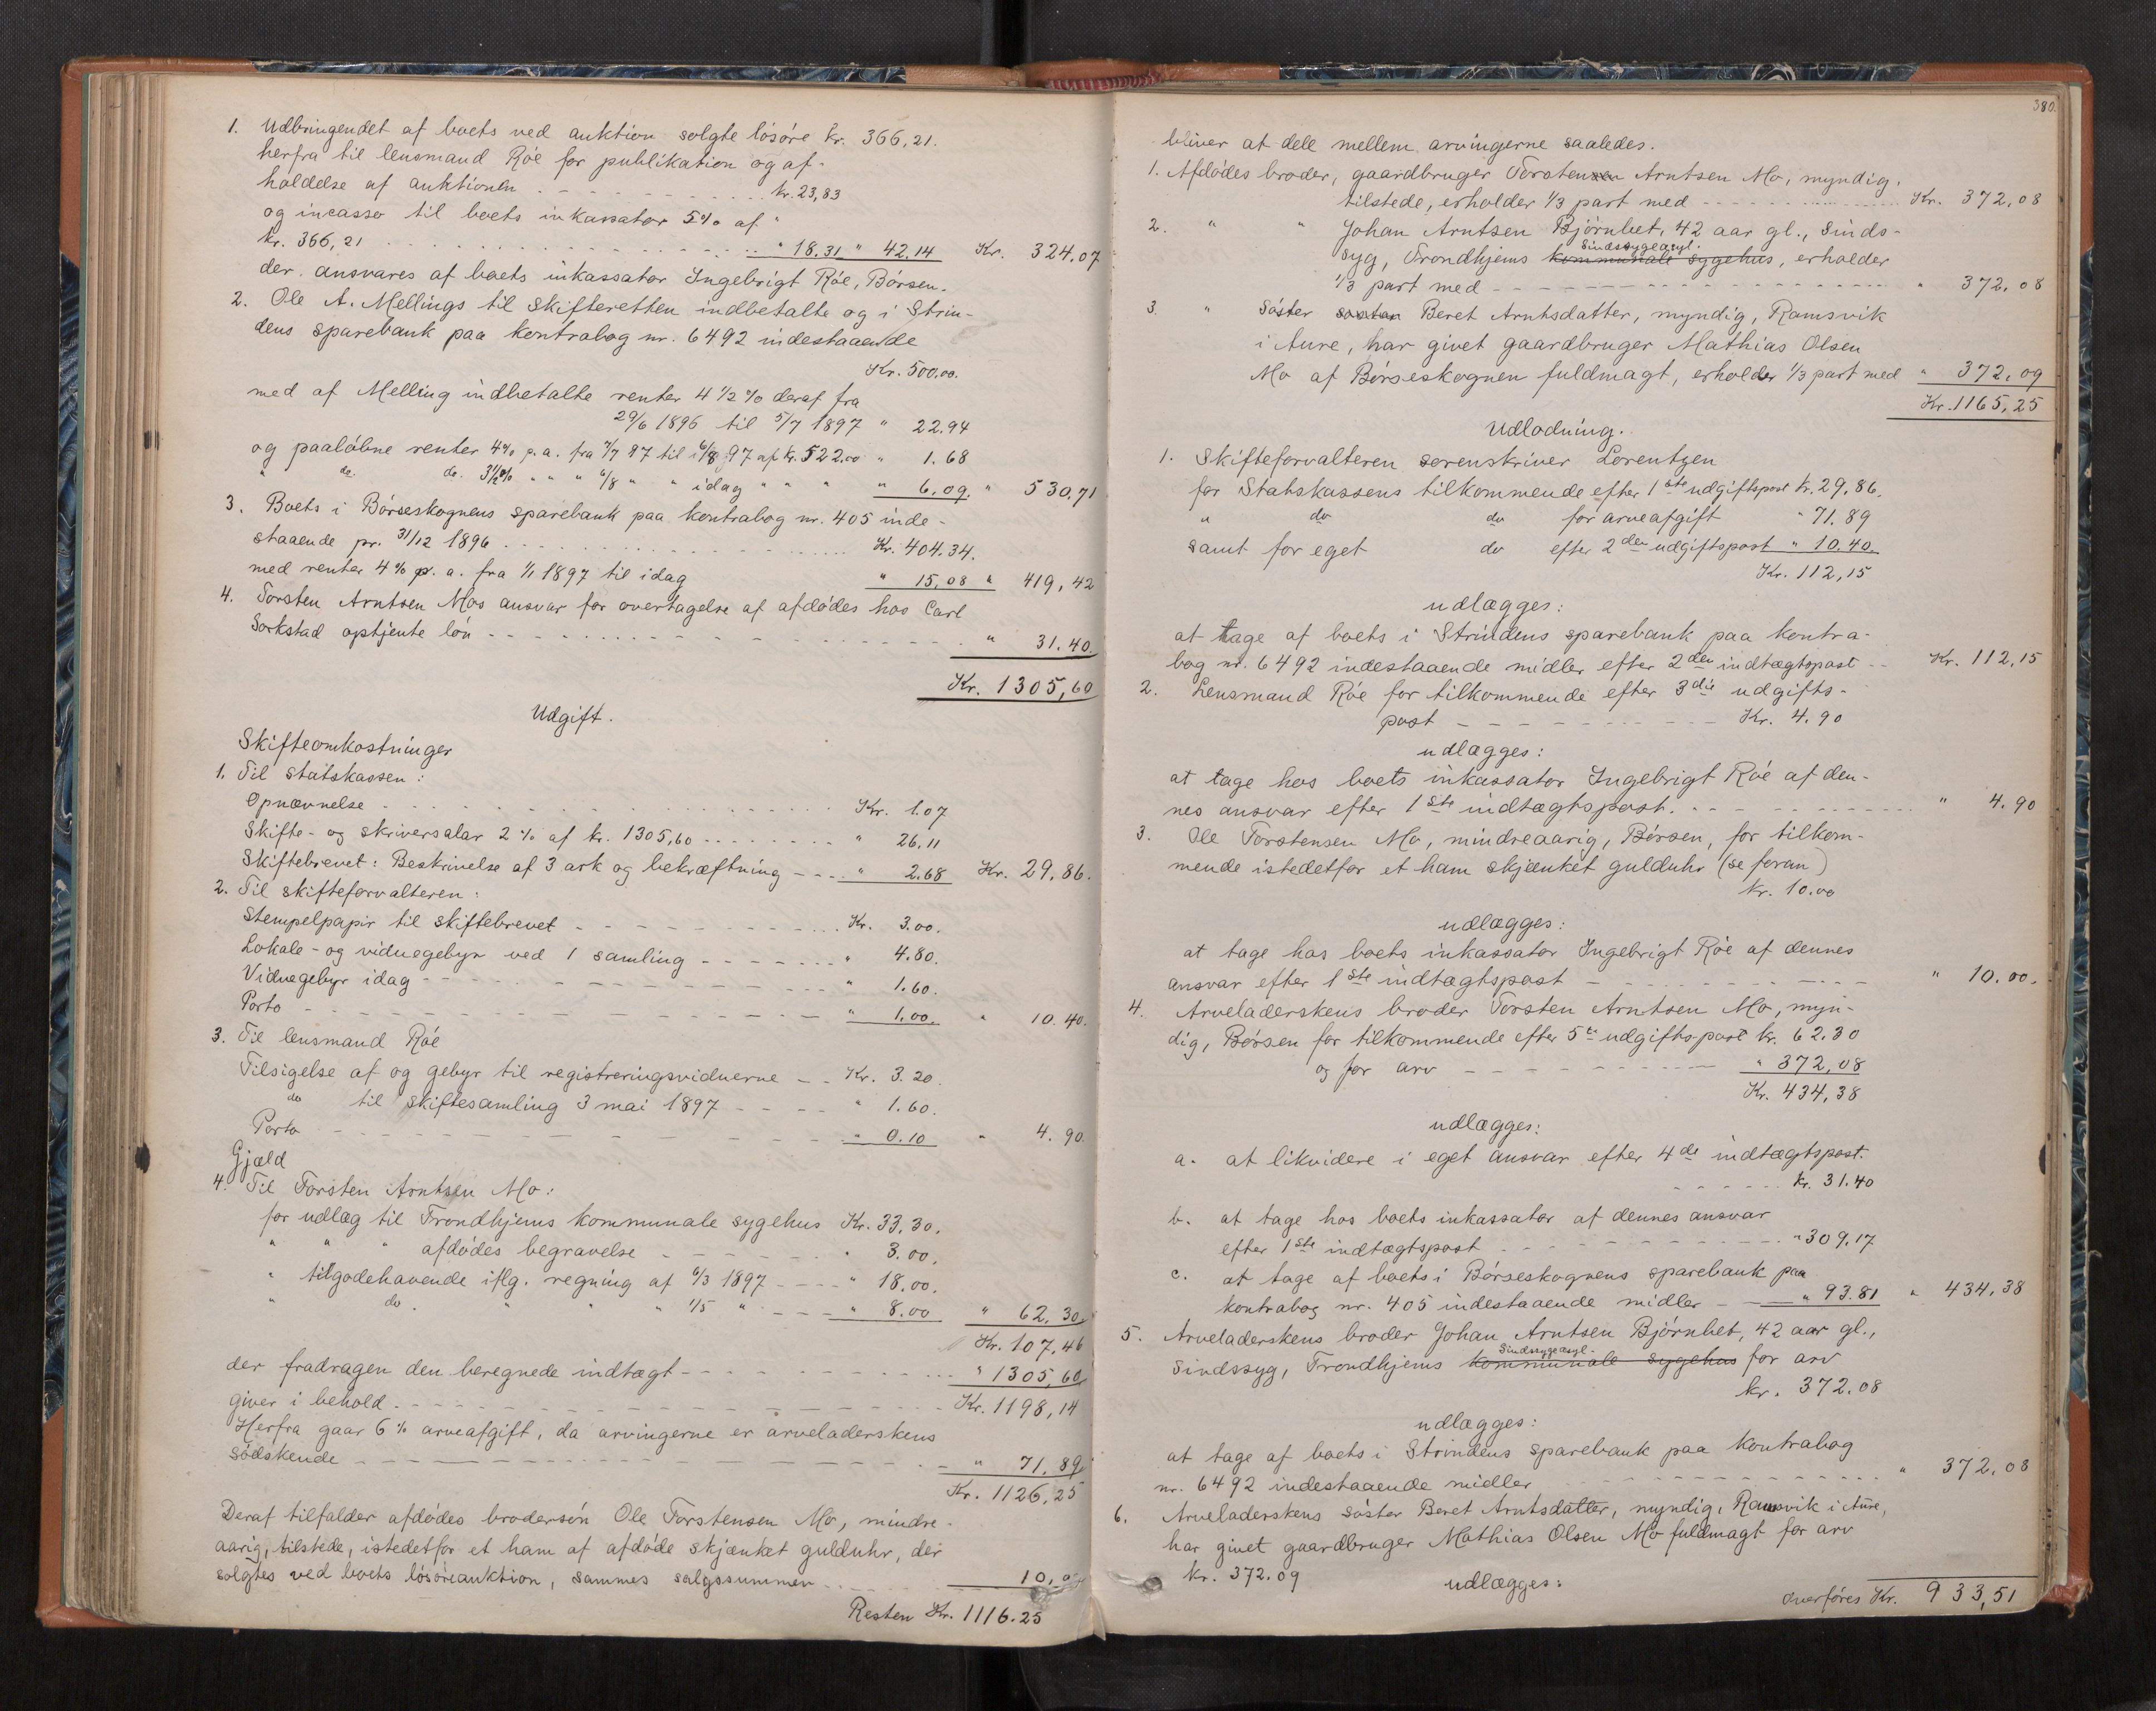 1. Udbringendet af boets ved auktion solgte løsøre kr. 366,21.
herfra til lensmand Røe for publikation og af-
holdelse af auktionen . - - - - - - ... kr. 23,83
og incasso til boets inkassator 5% af "
kr. 366,21 . . . . . . . . . . . " 18.31 " 42.14 Kr. 324.07
der ansvares af boets inkassator Ingebrigt Røe, Børsen.
2. Ole A. Mellings til skifteretten indbetalte og i Strin-
dens sparebank paa kontrabog nr. 6492 indestaaende
Kr. 500.00.
med af Melling indbetalte renter 4 1/2 % deraf fra
29/6 1896 til 5/7 1897 " 22.94
og paaløbne renter 4% p.a. fra 7/7 97 til 6/8 97 af kr. 522.00 " 1.68
" do. do. 3 1/2 % " " " 6/8 " " idag " " " " 6.09. " 530,71
3. Boets i Børseskognens sparebank paa kontrabog nr. 405 inde-
staaende pr. 31/12 1896 . . . . . . . . . . Kr. 404.34.
med renter 4% p. a. fra 1/1 1897 til idag " 15,08 " 419,42
4. Torsten Arntsen Mos ansvar for overtagelse af afdødes hos Carl
Sorkstad optjente løn - - - . . . . . - - - - - " 31.40.
Kr. 1305,60
Udgift.
Skifteomkostninger
1. Til statskassen:
Opnævnelse . . . . . . . . . . . Kr. 1.07
Skifte- og skriversalar 2% af kr. 1305,60 . . . . . . . " 26.11
Skiftebrevet: Beskrivelse af 3 ark og bekræftning - - . . " 2.68 Kr. 29,86.
2. Til skifteforvalteren:
Stempelpapir til skiftebrevet - - - - - - . . . Kr. 3.00.
Lokale- og vidnegebyr ved 1 samling - - - - . . . " 4.80.
Vidnegebyr idag - - - - - - - - . . " 1.60.
Porto - - - - - - - - - - - " 1,00. " 10.40.
3. Til lensmand Røe
Tilsigelse af og gebyr til registreringsvidnerne - - Kr. 3.20.
do til skiftesamling 3 mai 1897 - - - - " 1.60.
Porto - - - - - - - - - - " 0.10 " 4.90.
Gjæld
4. Til Torsten Arntsen Mo:
for udlæg til Trondhjems kommunale sygehus Kr. 33,30.
" " " afdødes begravelse - - - - - " 3.00,
" tilgodehavende iflg. regning af 6/3 1897 - - - - " 18,00.
" do. " " " 1/5 " - - - - " 8.00 " 62,30
Kr. 107,46
der fradragen den beregnede indtægt - - - . . . . . " 1305,60
giver i behold . - - - - - - - - - - - Kr. 1198,14
Herfra gaar 6% arveafgift, da arvingerne er arveladerskens
sødskende - - - - - - - - - - - " 71,89
Kr. 1126,25
Deraf tilfalder afdødes brodersøn Ole Torstensen Mo, mindre-
aarig, tilstede, istedetfor et ham af afdøde skjænket gulduhr, der
solgtes ved boets løsøreauktion, sammes salgssummen . . . 10,00
Resten Kr. 1116.25
380.
bliver at dele mellem arvingerne saaledes.
1. Afdødes broder, gaardbruger Torstensen Arntsen Mo, myndig.
tilstede, erholder 1/3 part med - - - - . . . . . . . Kr. 372,08
2. " " Johan Arntsen Bjørnbet, 42 aar gl., sinds-
Sindssygeasyl.
syg, Trondhjems kommunale sygehus, erholder
1/3 part med - - - - - - - - - - - . . . " 372,08
3. " Søster søster Beret Arntsdatter, myndig, Ramsvik
i Aure, har givet gaardbruger Mathias Olsen
Mo af Børseskognen fuldmagt, erholder 1/3 part med " 372,09
Kr. 1165,25
Udlodning.
1. Skifteforvalteren sorenskriver Lorentzen
for Statskassens tilkommende efter 1ste udgiftspost kr. 29,86.
" do do for arveafgift " 71.89
samt for eget do efter 2den udgiftspost " 10.40.
Kr. 112,15
udlægges:
at tage af boets i Strindens sparebank paa kontra-
bog nr. 6492 indestaaende midler efter 2den indtægtspost - - Kr. 112,15
2. Lensmand Røe for tilkommende efter 3die udgifts-
post - - - - - - - - - - Kr. 4.90
udlægges:
at tage hos boets inkassator Ingebrigt Røe af den-
nes ansvar efter 1ste indtægtspost. - - - . . . . - - - " 4.90
3. Ole Torstensen Mo, mindreaarig, Børsen, for tilkom-
mende istedetfor et ham skjænket gulduhr (se foran)
kr. 10.00
udlægges:
at tage hos boets inkassator Ingebrigt Røe af dennes
ansvar efter 1ste indtægtspost - - - - - - . . . - - " 10.00.
4. Arveladerskens broder Torsten Arntsen Mo, myn-
dig, Børsen for tilkommende efter 5te udgiftspost kr. 62.30
og for arv - - - - - - - - - " 372,08
Kr. 434,38
udlægges:
a. at likvidere i eget ansvar efter 4de indtægtspost.
- - - - - . kr. 31.40
b. at tage hos boets inkassator af dennes ansvar
efter 1ste indtægtspost - - - - - - - - . . . . " 309.17
c. at tage af boets i Børseskognens sparebank paa
kontrabog nr. 405 indestaaende midler - - - " 93.81 " 434,38
5. Arveladerskens broder Johan Arntsen Bjørnbet, 42 aar gl.,
Sindssygeasyl-
sindssyg, Trondhjems kommunale sygehus for arv
kr. 372.08
udlægges:
at tage af boets i Strindens sparebank paa kontrabog
nr. 6492 indestaaende midler - - - - - . . . . . " 372,08
6. Arveladerskens søster Beret Arntsdatter, myndig, Ramsvik i Aure,
har givet gaardbruger Mathias Olsen Mo fuldmagt for arv
kr. 372.09
udlægges:
overføres Kr. 933,51